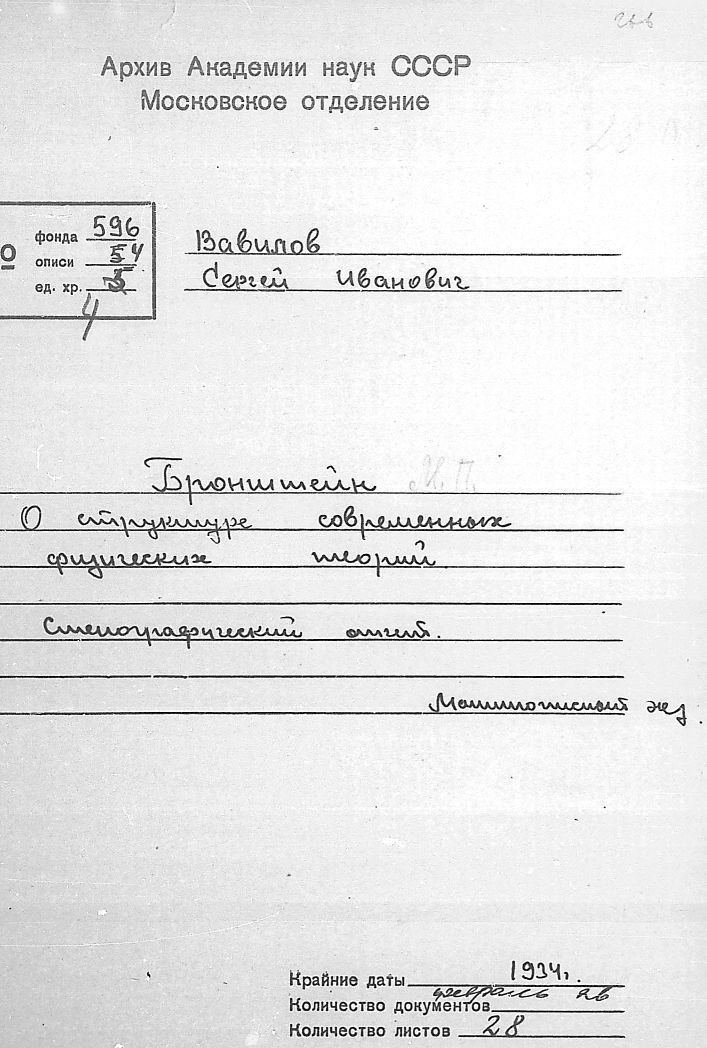 Архив Академии наук СССР
Московское отделение
фонда 596
описи 5 4
ед. хр. 5
4
Вавилов
Сергей Иванович
Бронштейн М.П.
О структуре современных
физических теорий
Стенографический отчет.
Машинописный экз.
Крайние даты 1934г.
февраль 26
Количество документов
Количество листов 28